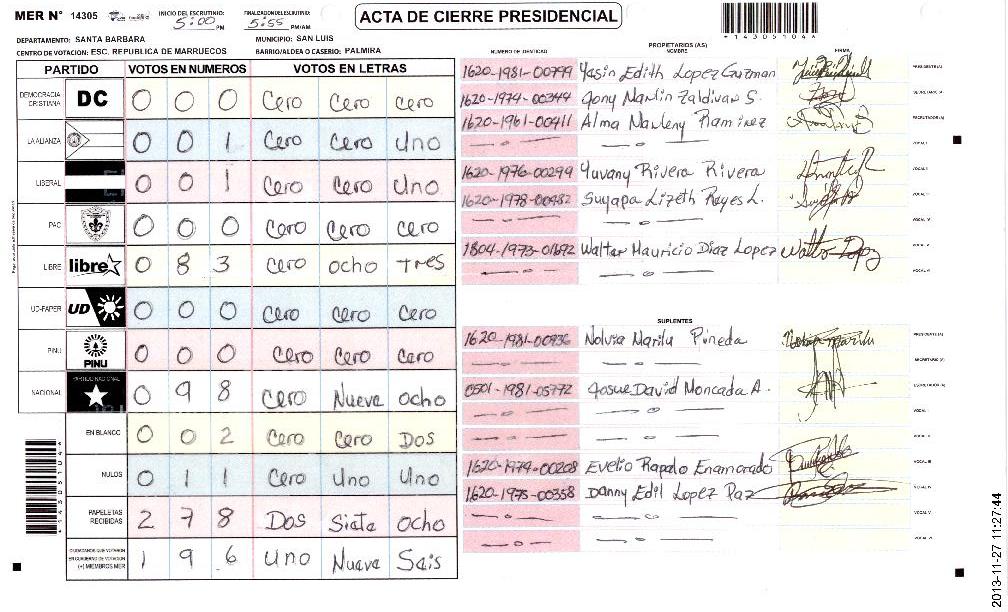 MER N° 14305 INICIO DEL ESCRUTINIO: 5:00 PM FINALIZACION DEL ESCRUTINIO: 5:55 PM/AM ACTA DE CIERRE PRESIDENCIAL
DEPARTAMENTO: SANTA BARBARA MUNICIPIO: SAN LUIS
CENTRO DE VOTACION: ESC. REPUBLICA DE MARRUECOS BARRIO/ALDEA O CASERIO: PALMIRA
PARTIDO VOTOS EN NUMEROS VOTOS EN LETRAS
DEMOCRACIA CRISTIANA DC 0 0 0 Cero Cero Cero
LA ALIANZA 0 0 1 Cero Cero Uno
LIBERAL 0 0 1 Cero Cero Uno
PAC 0 0 0 Cero Cero Cero
LIBRE libre 0 8 3 Cero ocho tres
UD-FAPER UD 0 0 0 Cero Cero Cero
PINU PINU 0 0 0 Cero Cero Cero
NACIONAL PARTIDO NACIONAL 0 9 8 Cero Nueve ocho
EN BLANCO 0 0 2 Cero Cero Dos
NULOS 0 1 1 Cero Uno Uno
PAPELETAS RECIBIDAS 2 7 8 Dos Siete ocho
CIUDADANOS QUE VOTARON EN CUADERNO DE VOTACION (+) MIEMBROS MER 1 9 6 Uno Nueve Seis
NUMERO DE IDENTIDAD PROPIETARIOS (AS) NOMBRE FIRMA
1620-1981-00799 Yasin Edith Lopez Guzman PRESIDENTE(A)
1620-1974-00344 Jony Marlin Zaldivar S. SECRETARIO(A)
1620-1961-00411 Alma Marleny Ramirez ESCRUTADOR(A)
VOCAL I
1620-1976-00299 Yuvany Rivera Rivera VOCAL II
1620-1978-00482 Suyapa Lizeth Reyes L. VOCAL III
VOCAL IV
1804-1973-01692 Walter Mauricio Diaz Lopez VOCAL V
VOCAL VI
SUPLENTES
1620-1981-00936 Nolvia Marilu Pineda PRESIDENTE(A)
SECRETARIO(A)
0501-1981-05772 Josue David Moncada A. ESCRUTADOR(A)
VOCAL I
VOCAL II
1620-1979-00208 Evelio Rapalo Enamorado VOCAL III
1620-1975-00358 Danny Edil Lopez Paz VOCAL IV
VOCAL V
VOCAL VI
2013-11-27 11:27:44